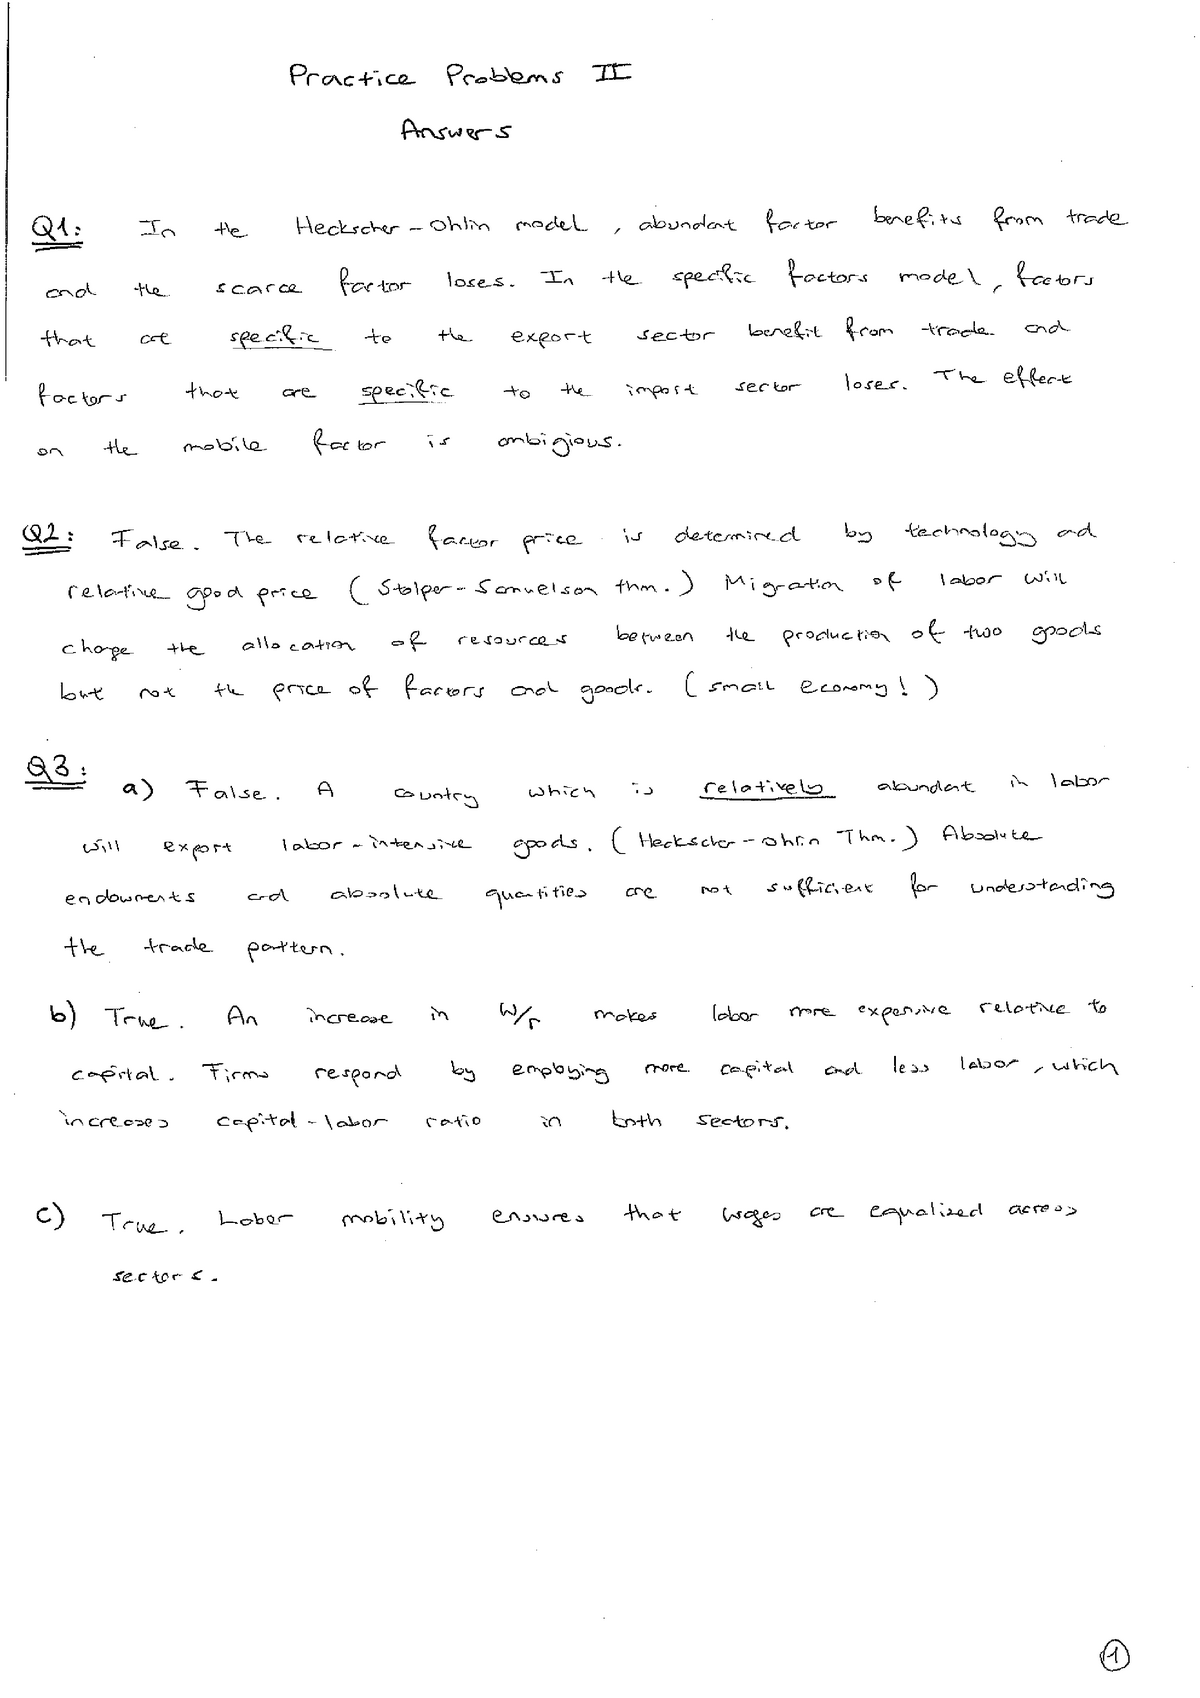 Practice Problems II
Answers
Q1: In the Heckscher-Ohlin model, abundant factor benefits from trade
and the scarce factor loses. In the specific factors model, factors
that are specific to the export sector benefit from trade and
factors that are specific to the import sector loses. The effect
on the mobile factor is ambigious.
Q2: False. The relative factor price is determined by technology and
relative good price (Stolper-Samuelson thm.) Migration of labor will
change the allocation of resources between the production of two goods
but not the price of factors and goods. (small economy!)
Q3: a) False. A country which is relatively abundant in labor
will export labor-intensive goods. (Heckscher-Ohlin Thm.) Absolute
endowments and absolute quantities are not sufficient for understanding
the trade pattern.
b) True. An increase in W/r makes labor more expensive relative to
capital. Firms respond by employing more capital and less labor, which
increases capital-labor ratio in both sectors.
c) True. Labor mobility ensures that wages are equalized across
sectors.
1